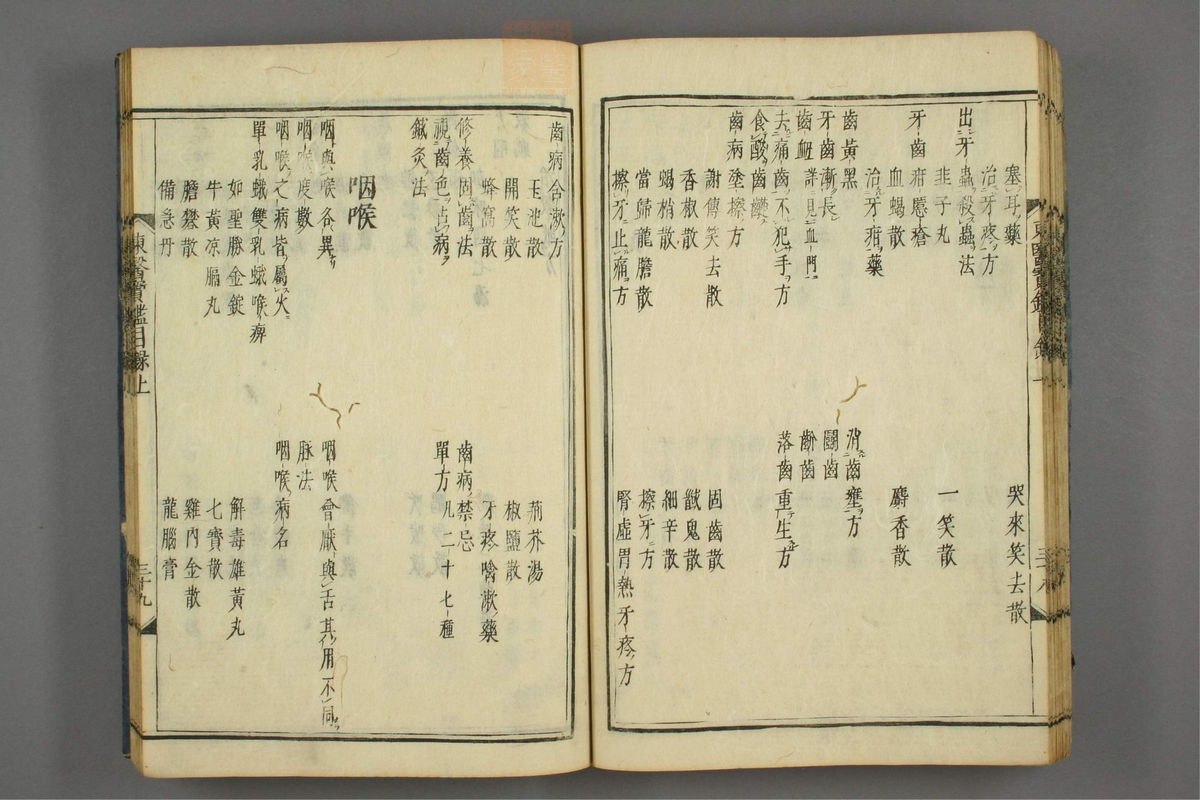 塞耳藥
哭來笑去散
治牙疼方
出牙蟲殺蟲法
韭子丸
一笑散
牙齒疳䘌瘡
血蝎散
麝香散
治牙疳藥
齒黃黑
消齒壅方
牙齒漸長
鬪齒
齒衄詳見血門
齘齒
去痛齒不犯手方
落齒重生方
食酸齒齼
齒病塗擦方
謝傳笑去散
固齒散
香椒散
戲鬼散
蝎梢散
細辛散
當歸龍膽散
擦牙方
擦牙止痛方
腎虛胃熱牙疼方
東醫寶鑑目錄上
三十八
齒病含漱方
玉池散
荊芥湯
開笑散
椒鹽散
蜂窩散
牙疼噙漱藥
修養固齒法
齒病禁忌
視齒色占病
單方凡二十七種
鍼灸法
咽喉
咽與喉各異
咽喉會厭與舌其用不同
咽喉度數
脉法
咽喉之病皆屬火
咽喉病名
單乳蛾雙乳蛾喉痺
如聖勝金錠
解毒雄黃丸
牛黃凉膈丸
七寶散
膽礬散
雞內金散
備急丹
龍腦膏
東醫寶鑑目錄上
三十九